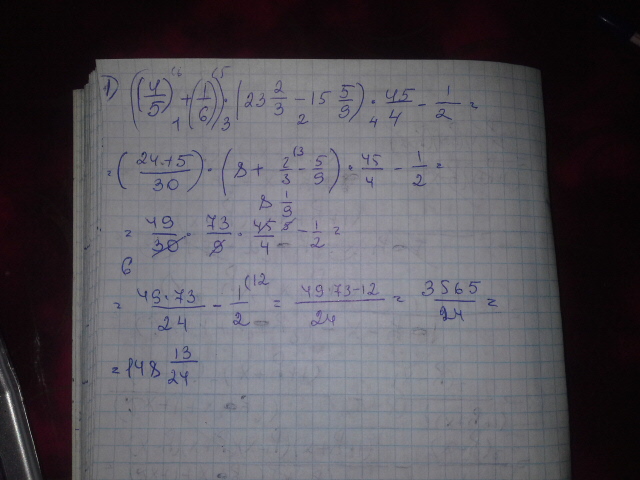 1) ((4/5)^(6 + (1/6)^(5) · (23 2/3 - 15 5/9) · 45/4 - 1/2 =
1 3 2 4
= (24+5/30) · (8 + 2/3^(3 - 5/9) · 45/4 - 1/2 =
8 1/9
= 49/30 · 73/9 · 45/4 5 - 1/2 =
6
= 49·73/24 - 1/2^(12 = 49·73-12/24 = 3565/24 =
= 148 13/24